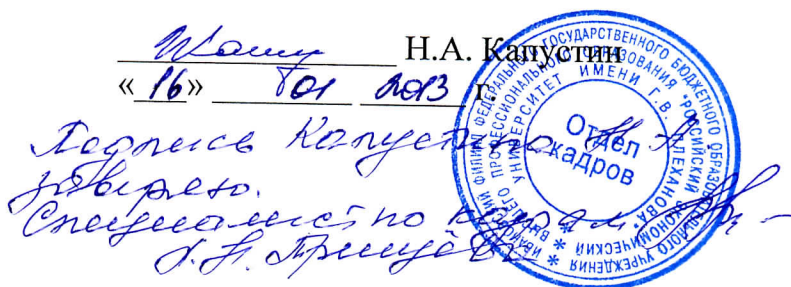 Н.А. Капустин
«16» 01 2013 г.
Подпись Капустина Н.А.
заверяю.
Специалист по кадрам
Отдел
кадров
ФИЛИАЛ ФЕДЕРАЛЬНОГО ГОСУДАРСТВЕННОГО БЮДЖЕТНОГО ОБРАЗОВАТЕЛЬНОГО УЧРЕЖДЕНИЯ
ВЫСШЕГО ПРОФЕССИОНАЛЬНОГО ОБРАЗОВАНИЯ "РОССИЙСКИЙ ЭКОНОМИЧЕСКИЙ
УНИВЕРСИТЕТ ИМЕНИ Г.В. ПЛЕХАНОВА"